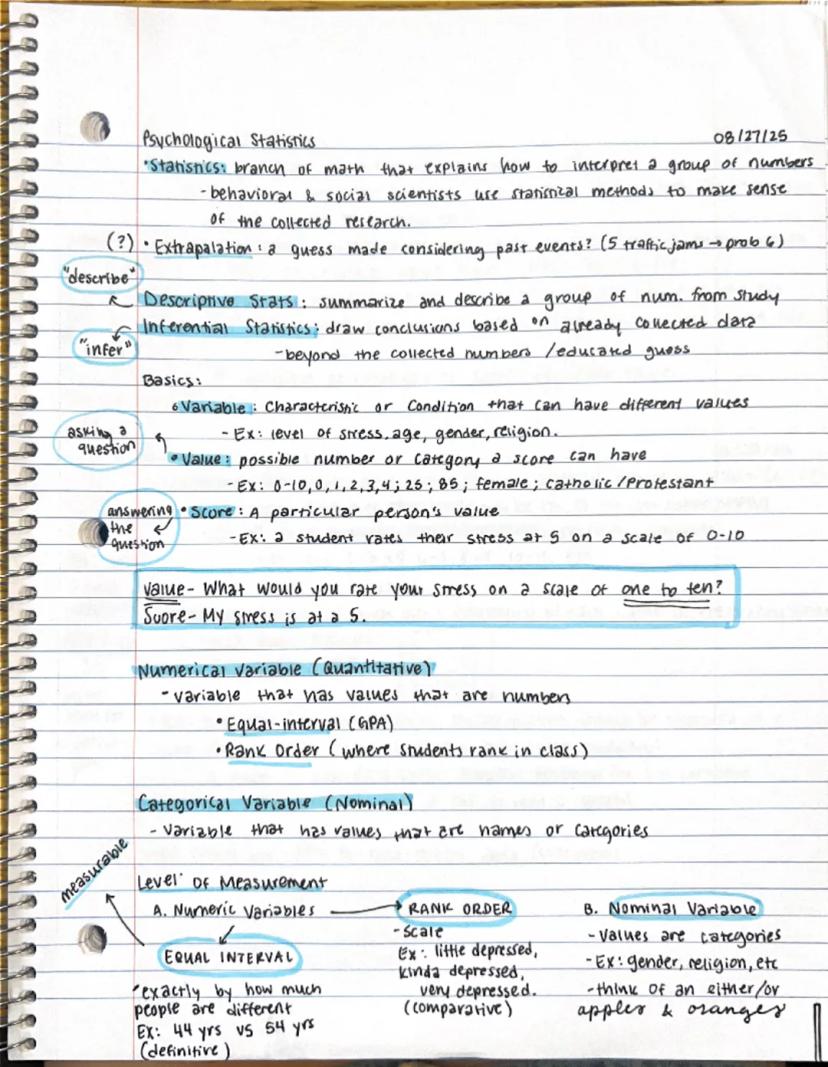 Psychological Statistics 08/27/25
•Statistics: branch of math that explains how to interpret a group of numbers
- behavioral & social scientists use statistical methods to make sense
of the collected research.
(?) • Extrapalation: a guess made considering past events? (5 traffic jams → prob 6)
"describe"
Descriptive Stats: summarize and describe a group of num. from study
Inferential Statistics: draw conclusions based on already collected data
"infer"
- beyond the collected numbers / educated guess
Basics:
• Variable: Characteristic or Condition that can have different values
asking a
question
- Ex: level of stress, age, gender, religion.
• Value: possible number or category a score can have
- Ex: 0-10, 0, 1, 2, 3, 4; 25; 85; female; catholic/Protestant
answering
the
question
• Score: A particular person's value
- Ex: a student rates their stress at 5 on a scale of 0-10
Value- What would you rate your stress on a scale of one to ten?
Suore- My stress is at a 5.
Numerical Variable (Quantitative)
- variable that has values that are numbers
• Equal-interval (GPA)
• Rank Order (where students rank in class)
Categorical Variable (Nominal)
- Variable that has values that are names or categories
measurable
Level Of Measurement
A. Numeric Variables → RANK ORDER
- Scale
Ex: little depressed,
kinda depressed,
very depressed.
(comparative)
EQUAL INTERVAL
•exactly by how much
people are different
Ex: 44 yrs vs 54 yrs
(definitive)
B. Nominal Variable
- Values are categories
- Ex: gender, religion, etc
- think of an either/or
apples & oranges